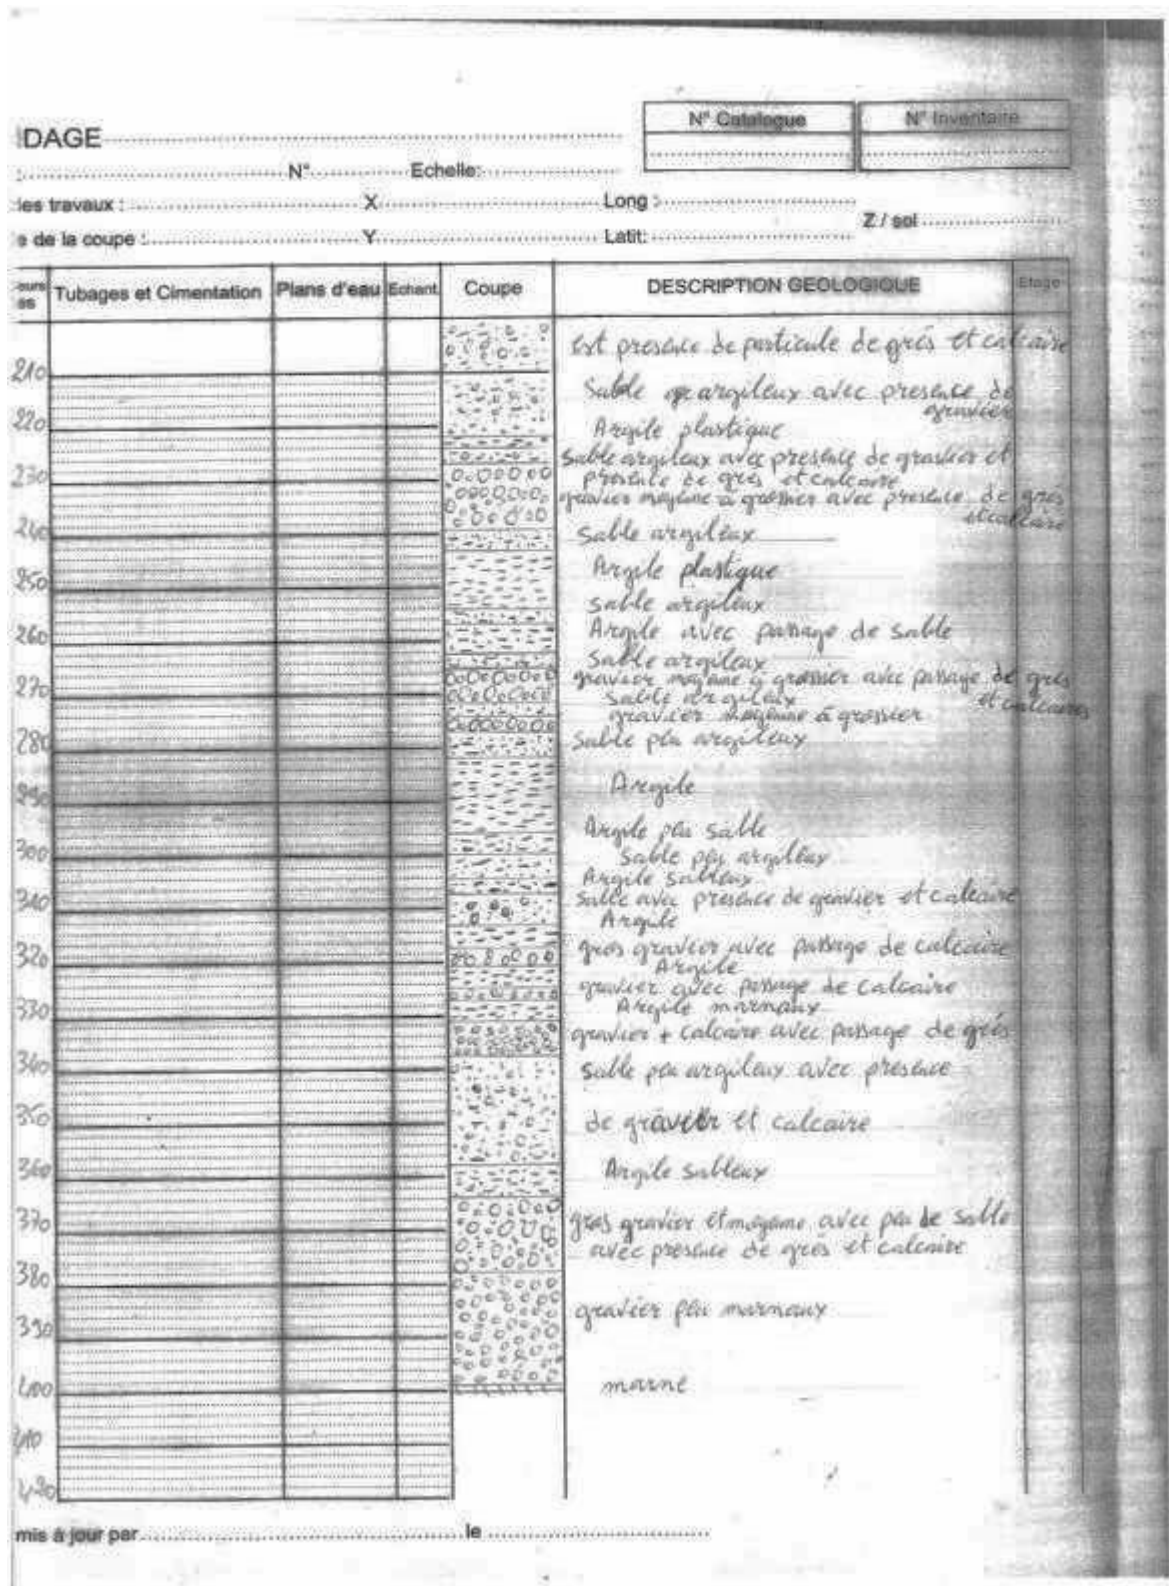 DAGE
N° Catalogue
N° Inventaire
N° Echelle:
les travaux : X Long :
Z / sol
e de la coupe : Y Latit:
eurs
es
Tubages et Cimentation
Plans d'eau
Echant.
Coupe
DESCRIPTION GEOLOGIQUE
Etage
est presence de particule de grés et calcaire
210
Sable argileux avec presence de
gravier
220
Argile plastique
Sable argileux avec presence de gravier et
presence de grés et calcaire
230
gravier moyame à grossier avec presence de grés
et calcaire
240
Sable argileux
Argile plastique
250
sable argileux
260
Argile avec passage de sable
Sable argileux
gravier moyame à grossier avec passage de grés
et calcaires
270
Sable argileux
gravier moyame à grossier
280
Sable peu argileux
Argile
290
Argile peu sable
300
Sable peu argileux
Argile sableux
Sable avec presence de gravier et calcaire
310
Argile
gros gravier avec passage de calcaire
320
Argile
gravier avec passage de calcaire
Argile marnaux
330
gravier + calcaire avec passage de grés
340
Sable peu argileux avec presence
350
de gravier et calcaire
360
Argile sableux
370
gros gravier et moyame avec peu de sable
avec presence de grés et calcaire
380
gravier peu marnaux
390
400
marne
410
420
mis à jour par le